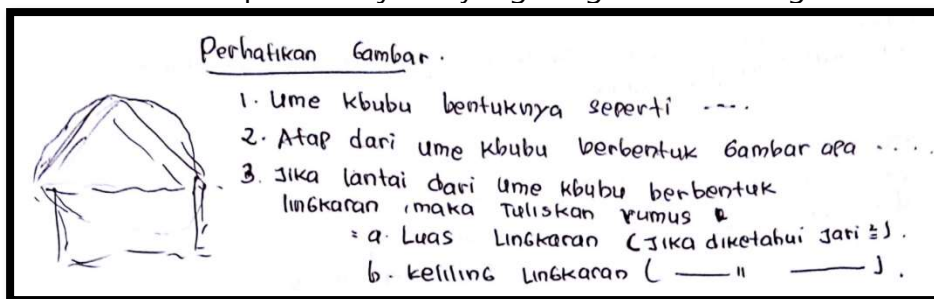 Perhatikan Gambar.
1. Ume Kbubu bentuknya seperti ....
2. Atap dari ume Kbubu berbentuk Gambar apa ....
3. Jika lantai dari Ume Kbubu berbentuk
lingkaran, maka Tuliskan rumus
a. Luas Lingkaran (Jika diketahui Jari²).
b. keliling Lingkaran ( —— " —— ).